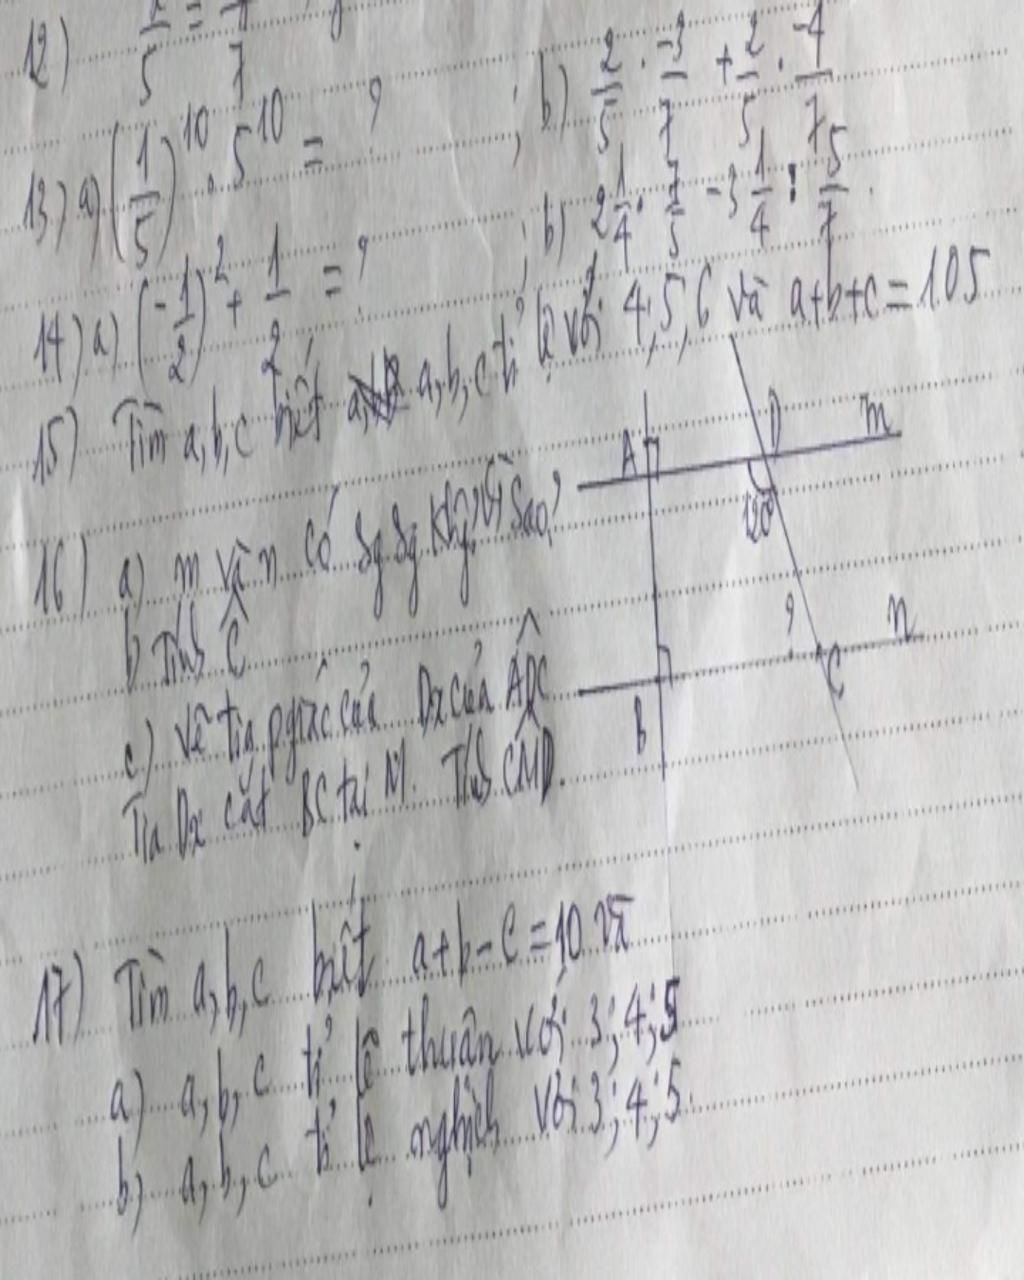 12) 5 = 7
13) a) (1/5)^10 . 5^10 = ? ; b) 2/5 . -3/7 + 2/5 . -4/7
14) a) (-1/2)^2 + 1/2 = ? ; b) 2 1/4 . 7/5 - 3 1/4 : 5/7
15) Tìm a,b,c biết a,b,c tỉ lệ với 4,5,6 và a+b+c = 105
16) a) m và n có sg sg khg, vì sao?
b) Tính Ĉ
c) Vẽ tia pgiác của Dx của ADC
Tia Dx cắt BC tại M. Tính CMD.
A D m
120°
? n
B C
17) Tìm a,b,c biết a+b-c = 10 và
a) a,b,c tỉ lệ thuận với 3;4;5
b) a,b,c tỉ lệ nghịch với 3;4;5.